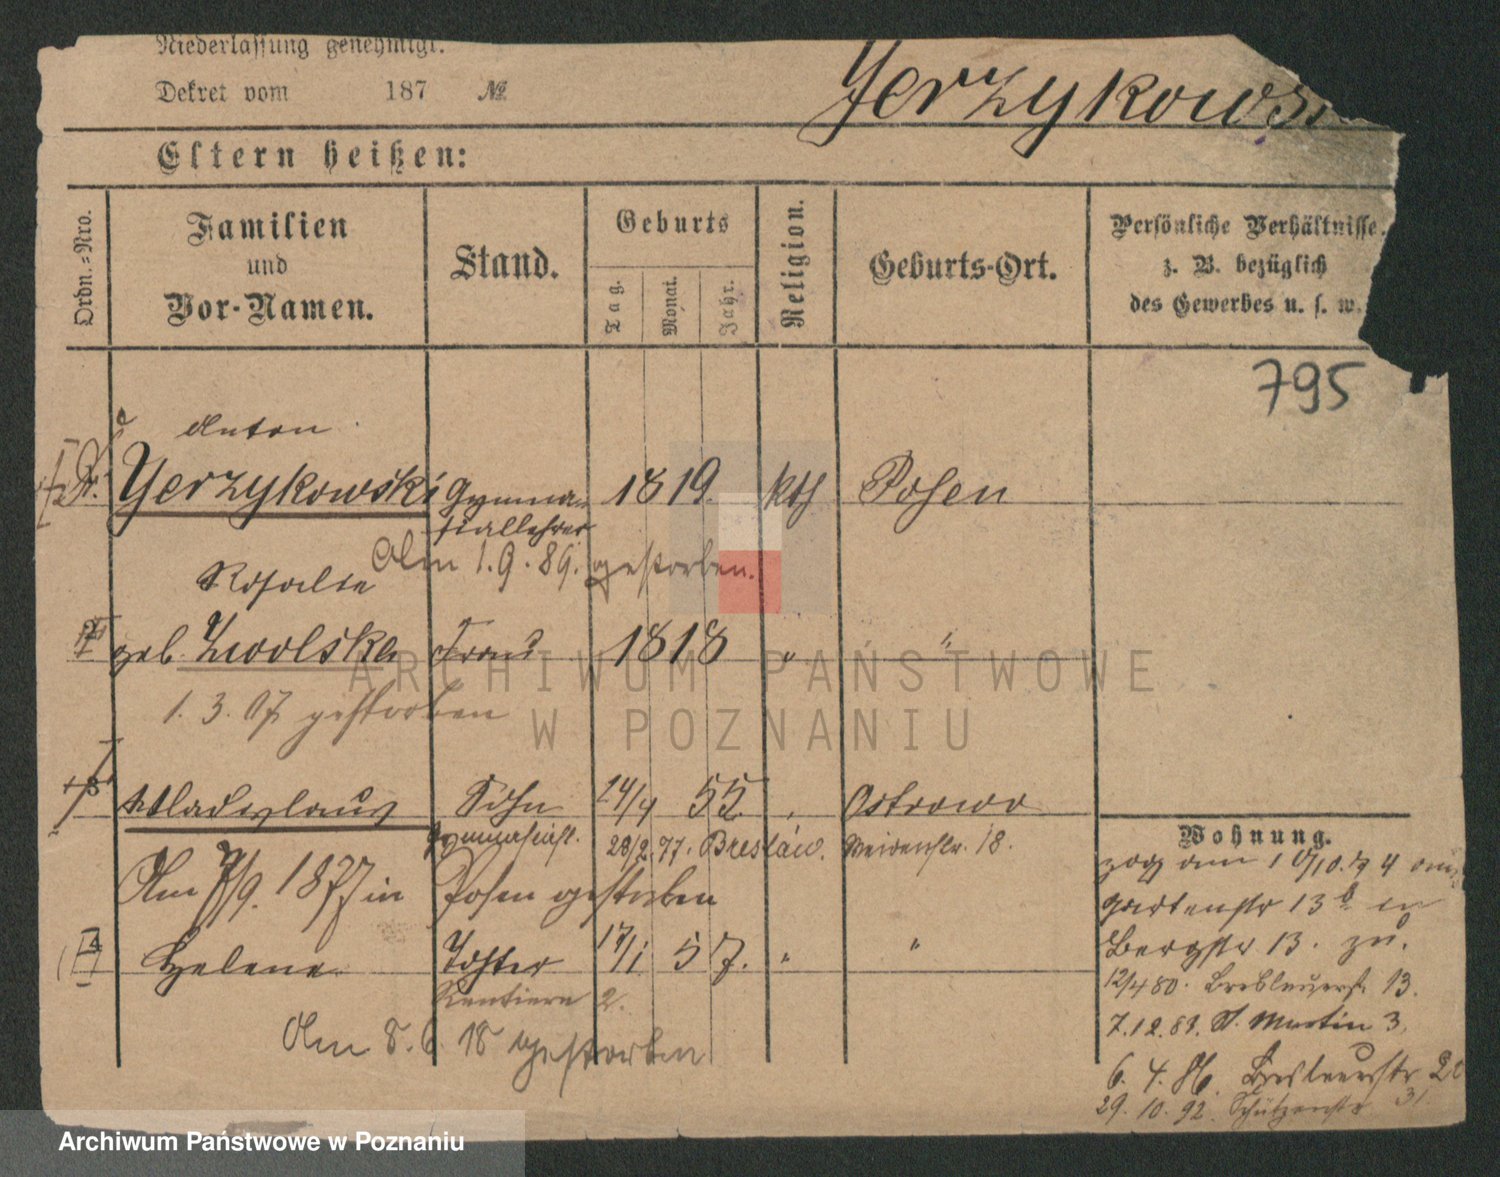 Niederlassung genehmigt.
Dekret vom 187 №
Jerzykowski
Eltern heißen:
Ordn.=Nro.
Familien
und
Vor-Namen.
Stand.
Geburts
Tag.
Monat.
Jahr.
Religion.
Geburts-Ort.
Persönliche Verhältnisse.
z. B. bezüglich
des Gewerbes u. s. w.
795
Anton
Dr. Jerzykowski Gymna- 1819. kth Posen
siallehrer
Am 1.9.89. gestorben.
Rosalie
geb Zwolska Frau 1818 " "
1.3.07 gestorben
3 Wladislaus Sohn 24/4 55. " Ostrowo
Gymnasiast. 28/2.77. Breslau. Weidenstr. 18.
Am 7/9. 1877 in Posen gestorben
4 Helene Tochter 17/1 57. " "
Rentiere
Am 8.6 18 gestorben
Wohnung.
zog am 1/10.74 am
Gartenstr 13b in
Bergstr 13. zu.
12/4 80. Breslauerstr. 13.
7.12.81. St. Martin 3.
6. 4. 86. Breslauerstr
29. 10. 92. Schützenstr 31.
ARCHIWUM PAŃSTWOWE
W POZNANIU
Archiwum Państwowe w Poznaniu